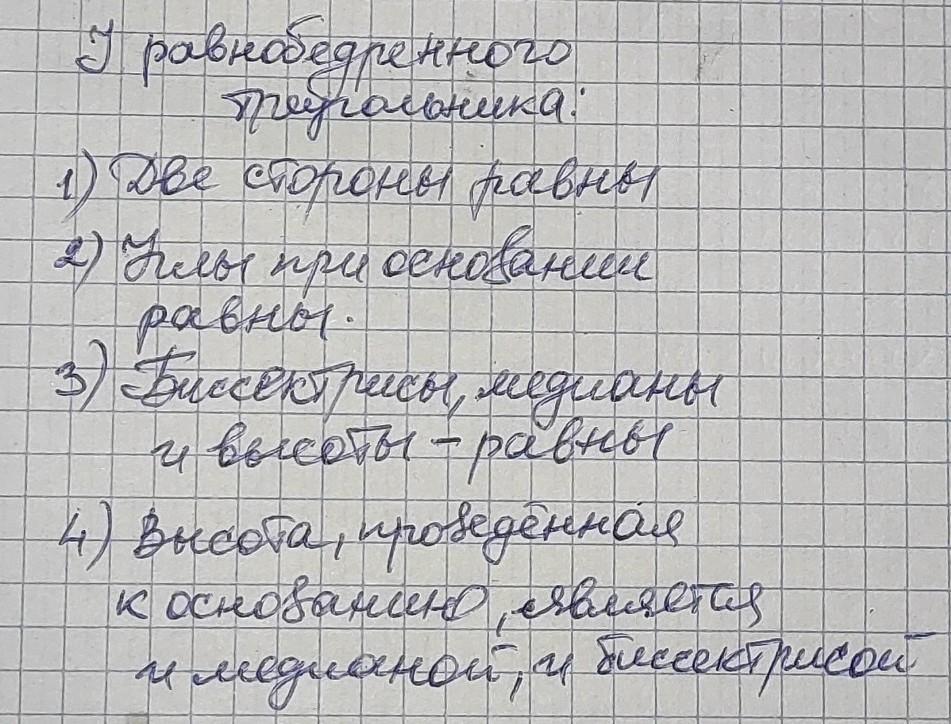 У равнобедренного
треугольника:
1) Две стороны равны
2) Углы при основании
равны.
3) Биссектрисы, медианы
и высоты - равны
4) Высота, проведённая
к основанию, является
и медианой, и биссектрисой